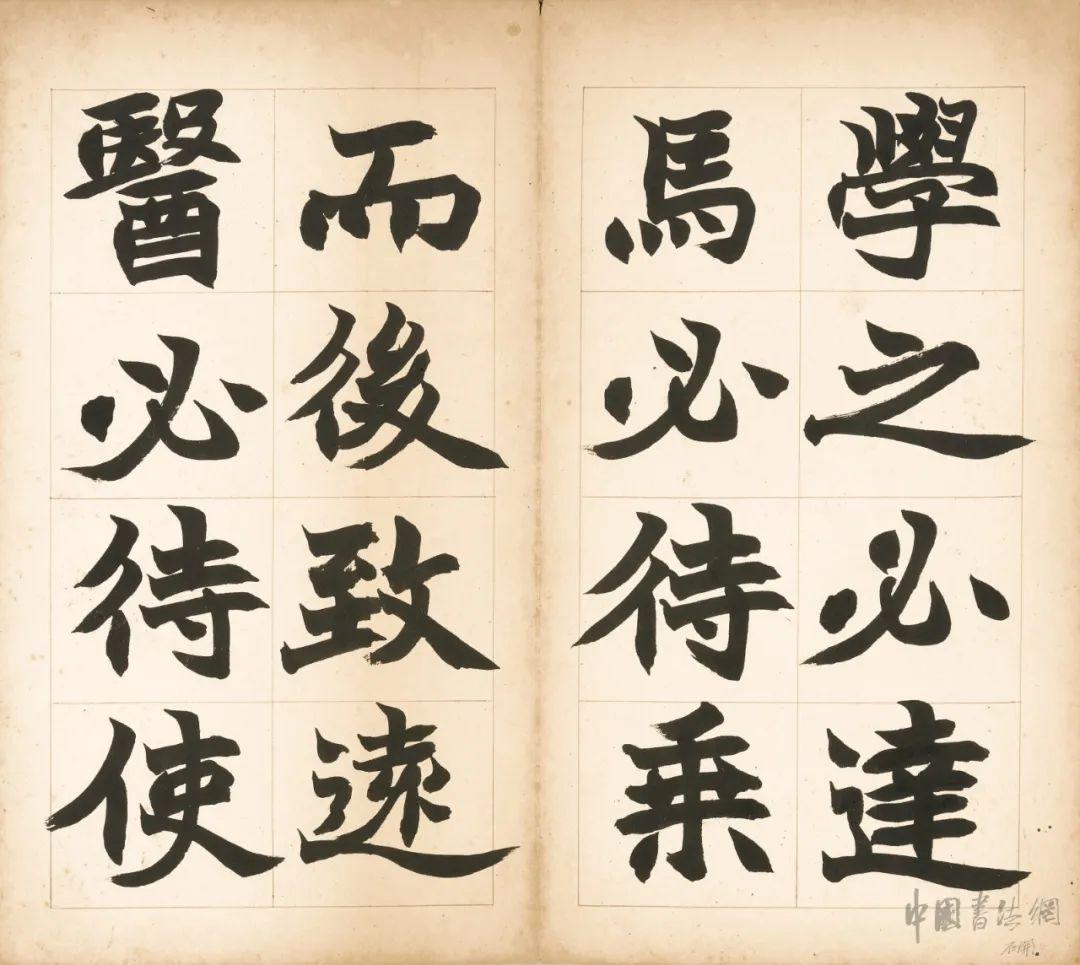 學之必達
馬必待乘
而後致遠
醫必待使
中國書法網